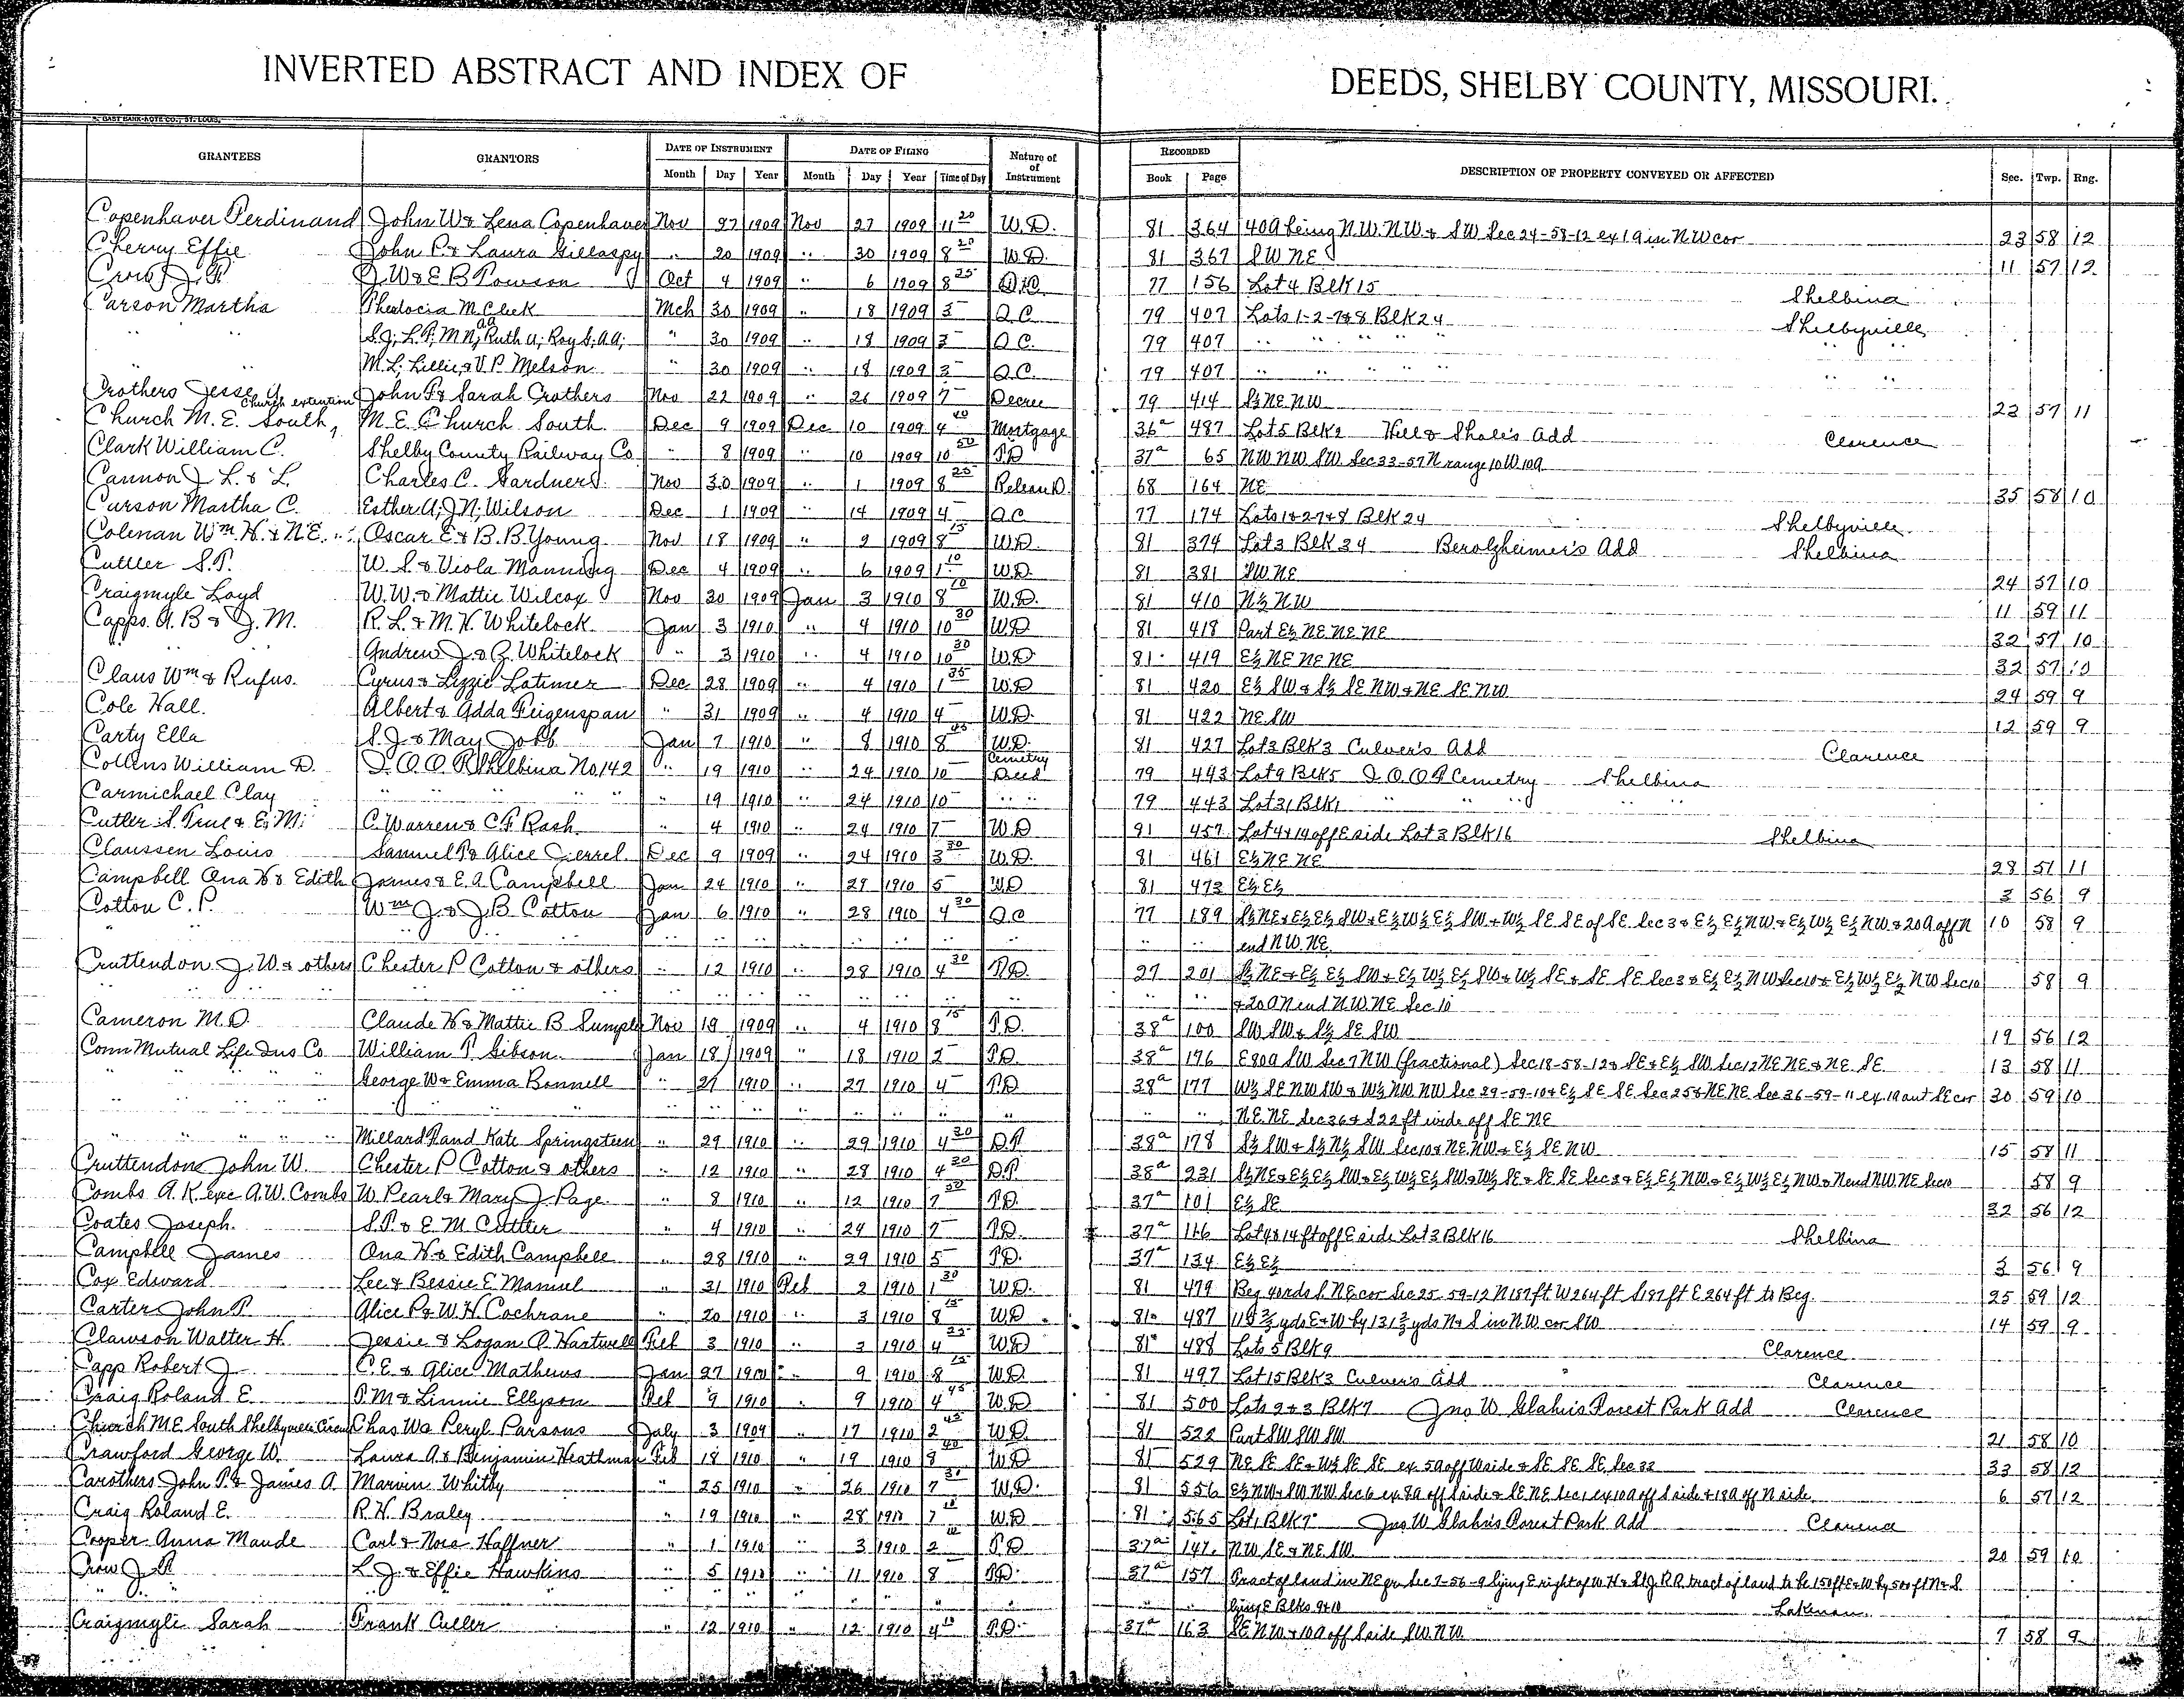 INVERTED ABSTRACT AND INDEX OF DEEDS, SHELBY COUNTY, MISSOURI.
GAST BANK-NOTE CO., ST. LOUIS.
GRANTEES GRANTORS DATE OF INSTRUMENT DATE OF FILING Nature of of Instrument RECORDED DESCRIPTION OF PROPERTY CONVEYED OR AFFECTED Sec. Twp. Rng.
Month Day Year Month Day Year Time of Day Book Page
Copenhaver Ferdinand John W & Lena Copenhaver Nov 27 1909 Nov 27 1909 11 20 W.D. 81 364 40A being N.W. NW & SW Sec 24-58-12 ex 1 A in N.W cor 23 58 12
Cherry Effie John P. & Laura Gillaspy " 20 1909 " 30 1909 8 20 W.D. 81 367 SW NE 11 57 12
J. W & E B Towson Oct 4 1909 " 6 1909 8 25 77 156 Lot 4 Blk 15 Shelbina
Carson Martha Theodocia M. Cleek Mch 30 1909 " 18 1909 3 – Q.C. 79 407 Lots 1-2-7&8 Blk 24 Shelbyville
" S.J; L.P; M N; Ruth A; Roy S; AA; " 30 1909 " 18 1909 3 – Q.C. 79 407 " " " " "
M.L; Lillie, & V.P. Melson " 30 1909 " 18 1909 3 – Q.C. 79 407 " " " " "
Crothers Jesse John F & Sarah Crothers Nov 22 1909 " 26 1909 7 – Decree 79 414 S½ NE NW 22 57 11
Church M. E. South, Church extention M. E. Church South Dec 9 1909 Dec 10 1909 4 40 Mortgage 36a 487 Lot 5 Blk 2 Hill & Shale's Add Clarence
Clark William C. Shelby County Railway Co " 8 1909 " 10 1909 10 50 T.D 37a 65 NW NW SW Sec 33-57 N range 10 W 10A
Cannon J. L. & L. Charles C. Gardner Nov 30 1909 " 1 1909 8 25 Release D. 68 164 NE 35 58 10
Carson Martha C. Esther A; J.N; Wilson Dec 1 1909 " 14 1909 4 – Q.C 77 174 Lots 1&2-7&8 Blk 24 Shelbyville
Coleman Wm H. & N.E. Oscar E & B. B. Young Nov 18 1909 " 2 1909 8 15 W.D. 81 374 Lot 3 Blk 34 Berolzheimer's Add Shelbina
Cuttler S.T. W. S. & Viola Manning Dec 4 1909 " 6 1909 1 10 W.D. 81 381 SW NE 24 57 10
Craigmyle Loyd W. W. & Mattie Wilcox Nov 30 1909 Jan 3 1910 8 10 W.D. 81 410 N½ NW 11 59 11
Capps A. B & J. M. R. L. & M. H. Whitelock Jan 3 1910 " 4 1910 10 30 W.D 81 418 Part E½ NE NE NE 32 57 10
" Andrew J. & Z. Whitelock " 3 1910 " 4 1910 10 30 W.D 81 419 E½ NE NE NE 32 57 10
Claus Wm & Rufus. Cyrus & Lizzie Latimer Dec 28 1909 " 4 1910 1 35 W.D 81 420 E½ SW & S½ SE NW & NE SE NW 24 59 9
Cole Hall. Albert & Adda Feigenspan " 31 1909 " 4 1910 4 – W.D. 81 422 NE SW 12 59 9
Carty Ella S. J & May Jobb Jan 7 1910 " 8 1910 8 45 W.D. 81 427 Lot 3 Blk 3 Culver's Add Clarence
Collins William D. I. O. O. F. Shelbina No. 142 " 19 1910 " 24 1910 10 – Cemetry Deed 79 443 Lot 9 Blk 5 I. O. O. F Cemetry Shelbina
Carmichael Clay " " " " 19 1910 " 24 1910 10 – " " 79 443 Lot 31 Blk 1 " " " "
Cutler S. True & E. M. C. Warren & C. F. Rash " 4 1910 " 24 1910 7 – W.D 81 457 Lot 4 & 14 off E side Lot 3 Blk 16 Shelbina
Claussen Louis Samuel P & Alice Jerrel Dec 9 1909 " 24 1910 3 30 W.D. 81 461 E½ NE NE 28 57 11
Campbell Ona W & Edith James & E. A. Campbell Jan 24 1910 " 29 1910 5 – W.D 81 473 E½ E½ 3 56 9
Cotton C. P. Wm J. & J. B. Cotton Jan 6 1910 " 28 1910 4 30 Q.C 77 189 S½ NE & E½ E½ SW & E½ W½ E½ SW & W½ SE SE of SE Sec 3 & E½ E½ NW & E½ W½ E½ NW & 20 A off N 10 58 9
" " " " " " " " " " end NW. NE.
Cruttendon J. W. & others Chester P Cotton & others " 12 1910 " 28 1910 4 30 T.D. 27 201 S½ NE & E½ E½ SW & E½ W½ E½ SW & W½ SE & SE SE Sec 3 & E½ E½ NW Sec 10 & E½ W½ E½ NW Sec 10 58 9
" " " " " " " " " " & 20 A N end N.W. NE Sec 10
Cameron M. D. Claude H & Mattie B Nov 19 1909 " 4 1910 8 15 T.D. 38a 100 SW SW & S½ SE SW 19 56 12
Conn Mutual Life Ins Co William P. Gibson Jan 18 1909 " 18 1910 2 – T.D 38a 176 E 80A SW Sec 7 NW (fractional) Sec 18-58-12 & SE & E½ SW Sec 12 NE NE & NE SE 13 58 11
" " " " George W & Emma Bonnell " 27 1910 " 27 1910 4 – T.D 38a 177 W½ SE NW SW & W½ NW NW Sec 29-59-10 & E½ SE SE Sec 25 & NE NE Sec 36-59-11 ex 1 A out SE cor 30 59 10
" " " " " " " " " " " NE. NE Sec 36 & S 22 ft wide off SE NE
" " " " Millard F and Kate Springsteen " 29 1910 " 29 1910 4 30 D.T. 38a 178 S½ SW & S½ N½ SW Sec 10 & NE NW & E½ SE NW 15 58 11
Cruttendon John W. Chester P Cotton & others " 12 1910 " 28 1910 4 30 D.T. 38a 231 S½ NE & E½ E½ SW & E½ W½ E½ SW & W½ SE & SE SE Sec 3 & E½ E½ NW & E½ W½ E½ NW & N end NW NE Sec 10 58 9
Combs A. K. exc A. W. Combs W. Pearl & Mary J. Page " 8 1910 " 12 1910 7 50 T.D. 37a 101 E½ SE 32 56 12
Coates Joseph. S. T. & E. M. Cuttler " 4 1910 " 24 1910 7 – T.D. 37a 116 Lot 4 & 14 ft off E side Lot 3 Blk 16 Shelbina
Campbell James Ona W & Edith Campbell " 28 1910 " 29 1910 5 – T.D. 37a 134 E½ E½ 3 56 9
Cox Edward Lee & Bessie E. Manuel " 31 1910 Feb 2 1910 1 30 W.D. 81 479 Beg 40 rds S NE cor Sec 25 59-12 N 187 ft W 264 ft S 187 ft E 264 ft to Beg. 25 59 12
Carter John P. Alice P & W. H. Cochrane " 20 1910 " 3 1910 8 15 W.D 81 487 yds E & W by yds N & S in N.W. cor SW 14 59 9
Clawson Walter H. Jessie & Logan O Hartwell Feb 3 1910 " 3 1910 4 25 W.D 81 488 Lots 5 Blk 9 Clarence
Capp Robert J C. E. & Alice Mathews Jan 27 " 9 1910 8 15 W.D. 81 497 Lot 15 Blk 3 Culver's Add Clarence
Craig Roland E. P. M & Linnie Ellyson Feb 9 1910 " 9 1910 4 45 W.D 81 500 Lots 2 & 3 Blk 7 Jno W. Glahn's Forest Park Add Clarence
Church M.E. South Shelbyville Circuit Chas W & Peryl Parsons July 3 1909 " 17 1910 2 45 W.D. 81 522 Part SW SW SW 21 58 10
Crawford George W. Laura A & Benjamin Heathman Feb 18 1910 " 19 1910 8 40 W.D 81 529 NE SE SE & W½ SE SE ex 5A off W side & SE SE SE Sec 32 33 58 12
Carothers John P. & James A Marvin Whitby " 25 1910 " 26 1910 7 30 W.D. 81 556 E½ NW & SW NW Sec 6 ex 8A off S side & SE NE Sec 1 ex 10A off S side & 18A off N side 6 57 12
Craig Roland E. R. H. Braley " 19 1910 " 28 1910 7 15 W.D 81 565 Lot 1 Blk 7 Jno W Glahn's Forest Park Add Clarence
Cooper Anna Maude Carl & Nora Haffner " 1 1910 " 3 1910 2 10 T.D. 37a 147 NW SE & NE SW 20 59 10
Crow J. R L. J. & Effie Hawkins " 5 1910 " 11 1910 8 T.D. 37a 157 Tract of land in NE qr Sec 7-56-9 lying E right of W H & St J. R.R. tract of land to be 150 ft E & W by 500 ft N & S
" " " " " " " " " lying E Blks 9 & 10 Lakenan
Craigmyle Sarah Frank Culler " 12 1910 " 12 1910 4 10 T.D. 37a 163 SE NW & 10A off S side SW NW 7 58 9